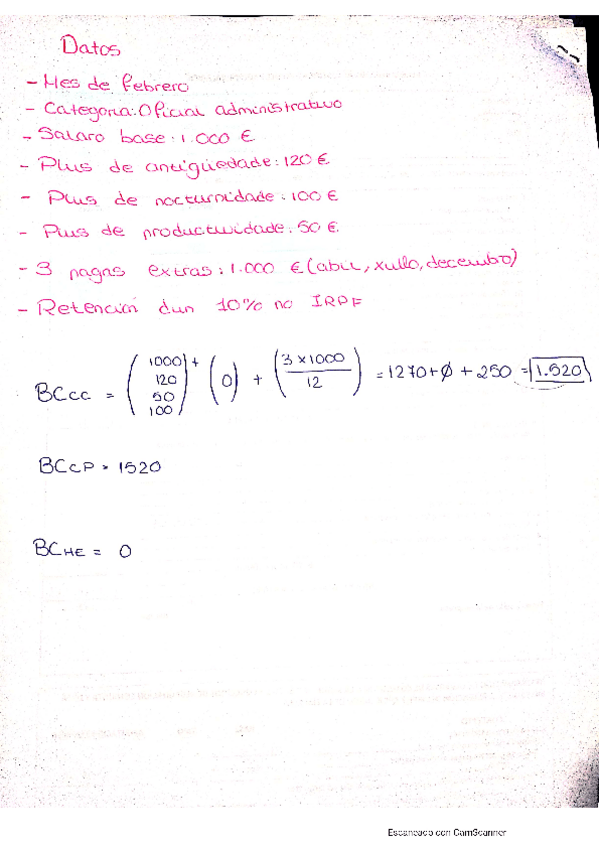 Datos
- Mes de febrero
- Categoria: Oficial administrativo
- Salaro base: 1.000 €
- Plus de antigüedade: 120 €
- Plus de nocturnidade: 100 €
- Plus de productividade: 50 €
- 3 pagas extras: 1.000 € (abril, xullo, decembro)
- Retención dun 10% no IRPF
BCcc = (1000 120 50 100) + (0) + (3 x 1000 / 12) = 1270 + ø + 250 = 1.520
BCcP = 1520
BCHE = 0
Escaneado con CamScanner